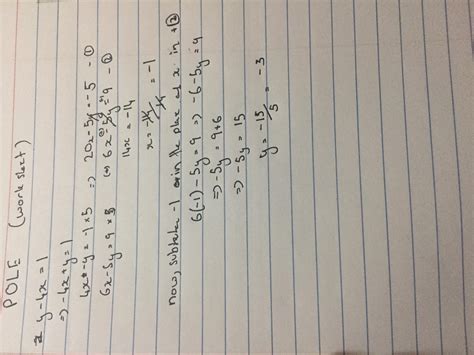 POLE (work sheet)
y - 4x = 1
⇒ -4x + y = 1
4x - y = -1 × 5 ⇒ 20x - 5y = -5 - ①
6x - 5y = 9 × 6x - 5y = 9 - ②
14x = -14
x = -14/14 = -1
now, -1 in the place of x in ②
6(-1) - 5y = 9 ⇒ -6 - 5y = 9
⇒ -5y = 9 + 6
⇒ -5y = 15
y = -15/5 = -3